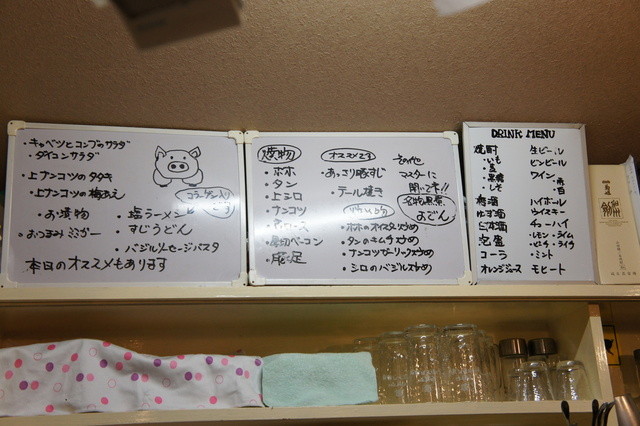 ・キャベツとコンブのサラダ
・ダイコンサラダ
・上ナンコツのタタキ
・上ナンコツの梅あえ
・お漬物
・おつまみミミガー
・塩ラーメン
・すじうどん
・バジルソーセージパスタ
本日のオススメもあります
コラーゲン入り
です
焼物
・ホホ
・タン
・上シロ
・ナンコツ
・厚切ベーコン
・豚足
オススメです
・あっさり豚すじ
・テール焼き
・ホホのオイスター炒め
・タンのキムチ炒め
・ナンコツガーリック炒め
・シロのバジル炒め
その他
マスターに
聞いて!!
名物黒煮
おでん
DRINK MENU
焼酎
・いも
・麦
・黒糖
・しそ
梅酒
ゆず酒
日本酒
泡盛
コーラ
オレンジジュース
生ビール
ビンビール
ワイン
・赤
・白
ハイボール
ウイスキー
チューハイ
・レモン・ライム
・ミント
モヒート